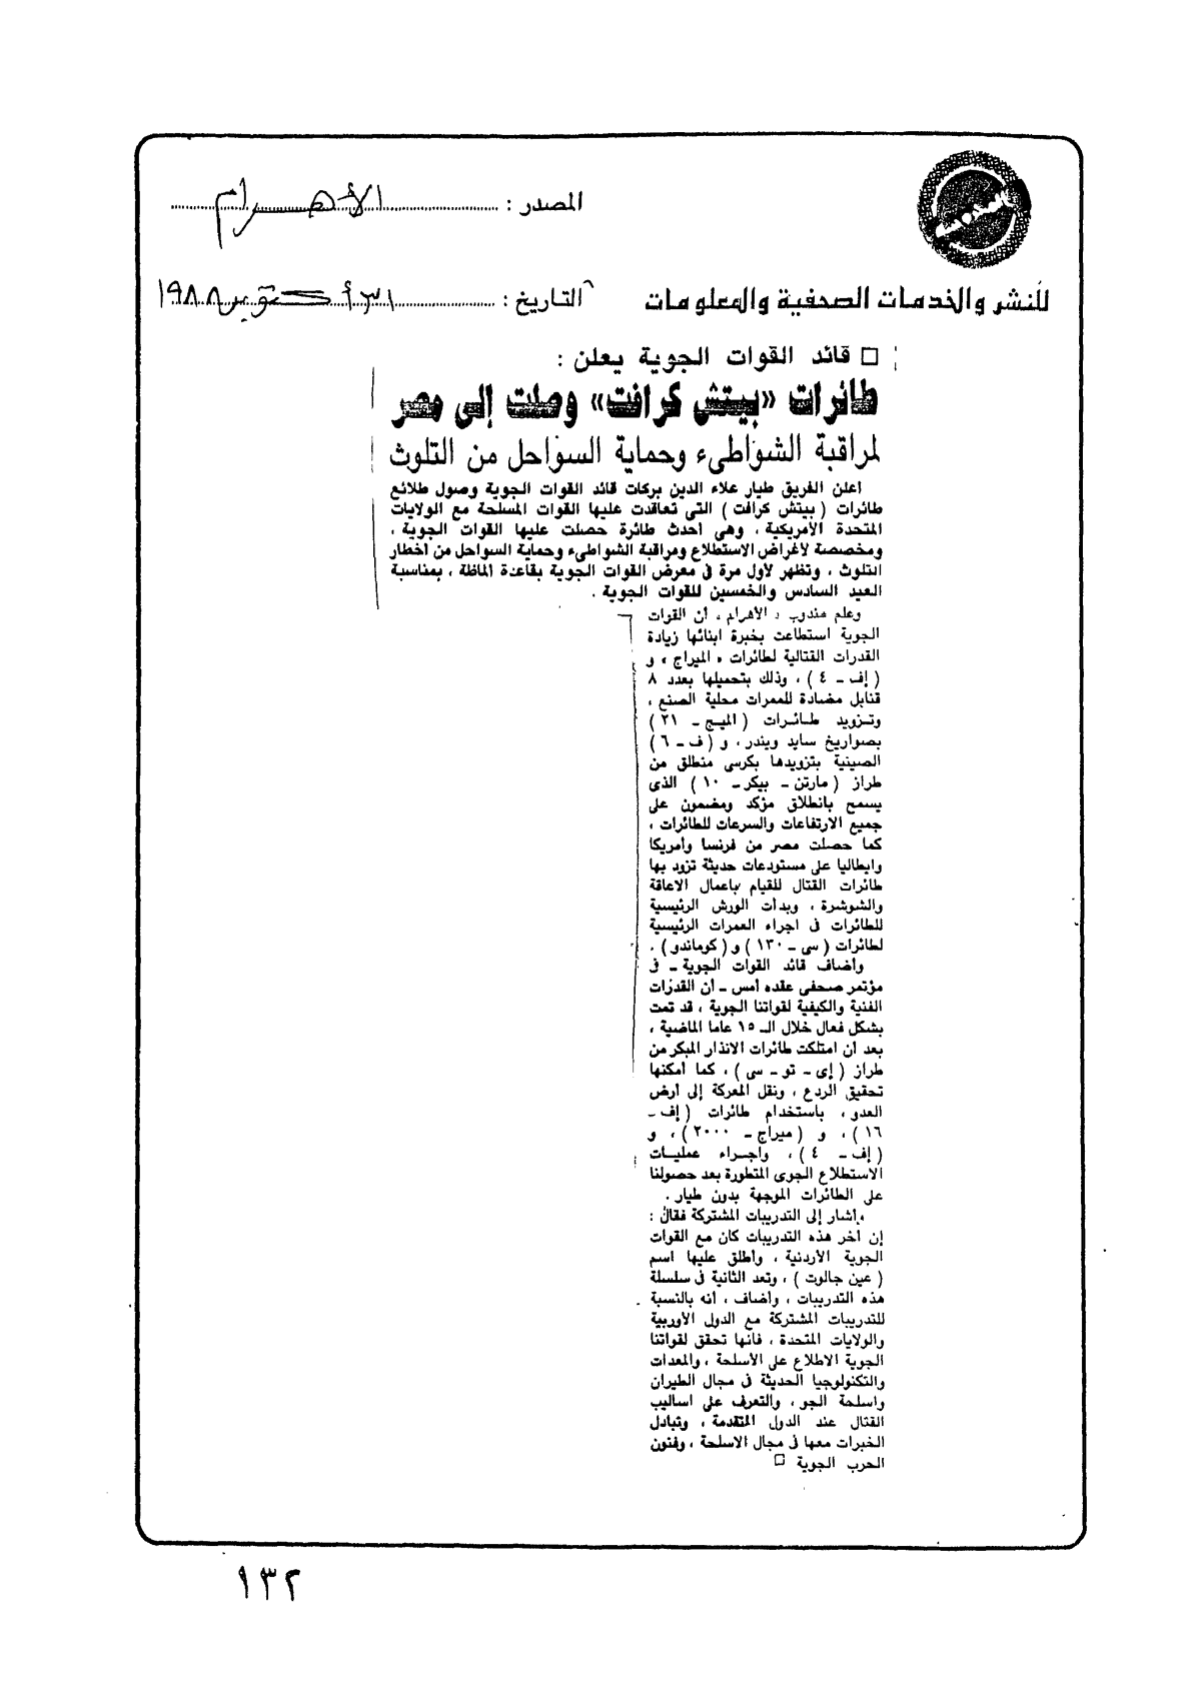 المصدر : الأهرام
للنشر والخدمات الصحفية والمعلومات
التاريخ : ٣١ أكتوبر ١٩٨٨
□ قائد القوات الجوية يعلن :
طائرات «بيتش كرافت» وصلت إلى مصر
لمراقبة الشواطىء وحماية السواحل من التلوث
اعلن الفريق طيار علاء الدين بركات قائد القوات الجوية وصول طلائع
طائرات ( بيتش كرافت ) التى تعاقدت عليها القوات المسلحة مع الولايات
المتحدة الأمريكية ، وهى أحدث طائرة حصلت عليها القوات الجوية ،
ومخصصة لأغراض الاستطلاع ومراقبة الشواطىء وحماية السواحل من أخطار
التلوث ، وتظهر لأول مرة فى معرض القوات الجوية بقاعدة ألماظة ، بمناسبة
العيد السادس والخمسين للقوات الجوية .
وعلم مندوب « الأهرام » أن القوات
الجوية استطاعت بخبرة ابنائها زيادة
القدرات القتالية لطائرات « الميراج » و
( إف ـ ٤ ) ، وذلك بتحميلها بعدد ٨
قنابل مضادة للممرات محلية الصنع ،
وتزويد طائرات ( الميج ـ ٢١ )
بصواريخ سايد ويندر ، و ( ف ـ ٦ )
الصينية بتزويدها بكرسى منطلق من
طراز ( مارتن ـ بيكر ـ ١٠ ) الذى
يسمح بانطلاق مؤكد ومضمون على
جميع الارتفاعات والسرعات للطائرات ،
كما حصلت مصر من فرنسا وأمريكا
وايطاليا على مستودعات حديثة تزود بها
طائرات القتال للقيام بأعمال الاعاقة
والشوشرة ، وبدأت الورش الرئيسية
للطائرات فى اجراء العمرات الرئيسية
لطائرات ( سى ـ ١٣٠ ) و ( كوماندو ) .
وأضاف قائد القوات الجوية ـ فى
مؤتمر صحفى عقده أمس ـ أن القدرات
الفنية والكيفية لقواتنا الجوية ، قد تمت
بشكل فعال خلال الـ ١٥ عاما الماضية ،
بعد أن امتلكت طائرات الانذار المبكر من
طراز ( إى ـ تو ـ سى ) ، كما أمكنها
تحقيق الردع ، ونقل المعركة إلى أرض
العدو ، باستخدام طائرات ( إف ـ
١٦ ) ، و ( ميراج ـ ٢٠٠٠ ) ، و
( إف ـ ٤ ) ، واجراء عمليات
الاستطلاع الجوى المتطورة بعد حصولنا
على الطائرات الموجهة بدون طيار .
وأشار إلى التدريبات المشتركة فقال :
إن آخر هذه التدريبات كان مع القوات
الجوية الأردنية ، وأطلق عليها اسم
( عين جالوت ) ، وتعد الثانية فى سلسلة
هذه التدريبات ، وأضاف ، أنه بالنسبة
للتدريبات المشتركة مع الدول الأوربية
والولايات المتحدة ، فأنها تحقق لقواتنا
الجوية الاطلاع على الأسلحة ، والمعدات
والتكنولوجيا الحديثة فى مجال الطيران
واسلحة الجو ، والتعرف على اساليب
القتال عند الدول المتقدمة ، وتبادل
الخبرات معها فى مجال الاسلحة ، وفنون
الحرب الجوية □
١٣٢